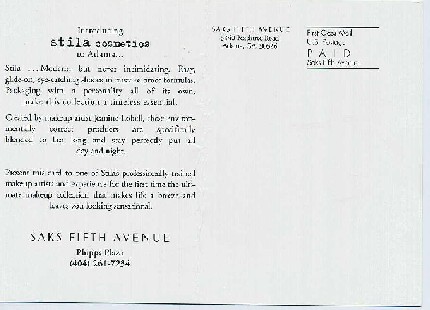 Introducing
stila cosmetics
to Atlanta...
Stila ... Modern, but never intimidating. Easy,
glide-on, eye-catching shades in formulas.
Packaging with a personality all of its own,
makes this collection a timeless essential.
Created by makeup artist Jeanine Lobell, these environ-
mentally correct products are specifically
blended to last long and stay perfectly put all
day and night.
Present this card to one of Stila's professionally trained
makeup artists and experience for the first time the ulti-
mate makeup collection that makes life a breeze and
leaves you looking sensational.
SAKS FIFTH AVENUE
Phipps Plaza
(404) 261-7234
SAKS FIFTH AVENUE
Peachtree Road
Atlanta, GA 30326
First Class Mail
U.S. Postage
PAID
Saks Fifth Avenue